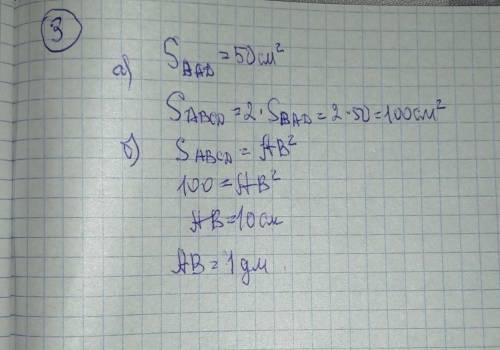 3
а) S_BAD = 50 см²
S_ABCD = 2 · S_BAD = 2 · 50 = 100 см²
б) S_ABCD = AB²
100 = AB²
AB = 10 см
AB = 1 дм.